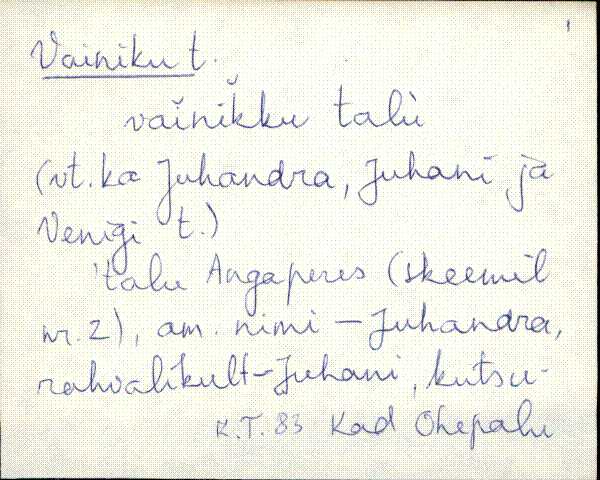 1
Vainiku t.
vaĭnikku talù
(vt. ka Juhandra, Juhani ja
Venigi t.)
'talu Angaperes (skeemil
nr. 2), am. nimi – Juhandra,
rahvalikult – Juhani, kutsu-
K.T. 83 Kad Ohepalu